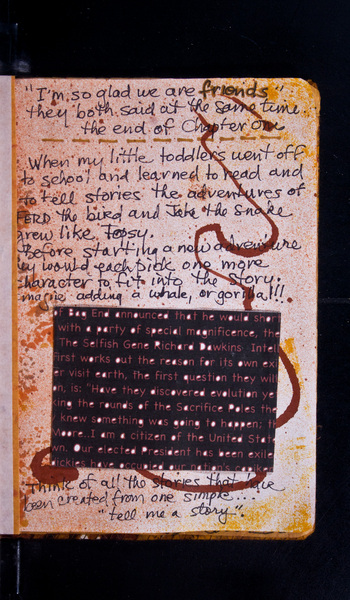 "I'm so glad we are friends"
they both said at the same time...
the end of Chapter One
When my little toddlers went off
to school and learned to read and
to tell stories the adventures of
FERD the bird and Jake the snake
grew like topsy.
Before starting a new adventure
they would each pick one more
character to fit into the story.
imagine adding a whale, or gorilla!!!
of Bag End announced that he would shor
with a party of special magnificence, the
The Selfish Gene Richard Dawkins Intel
first works out the reason for its own exi
er visit earth, the first question they will
on, is: "Have they discovered evolution ye
king the rounds of the Sacrifice Poles the
knew something was going to happen; th
More...I am a citizen of the United Stat
wn. Our elected President has been exile
ickies have occupied our nation's capi
Think of all the stories that have
been created from one simple....
"tell me a story".